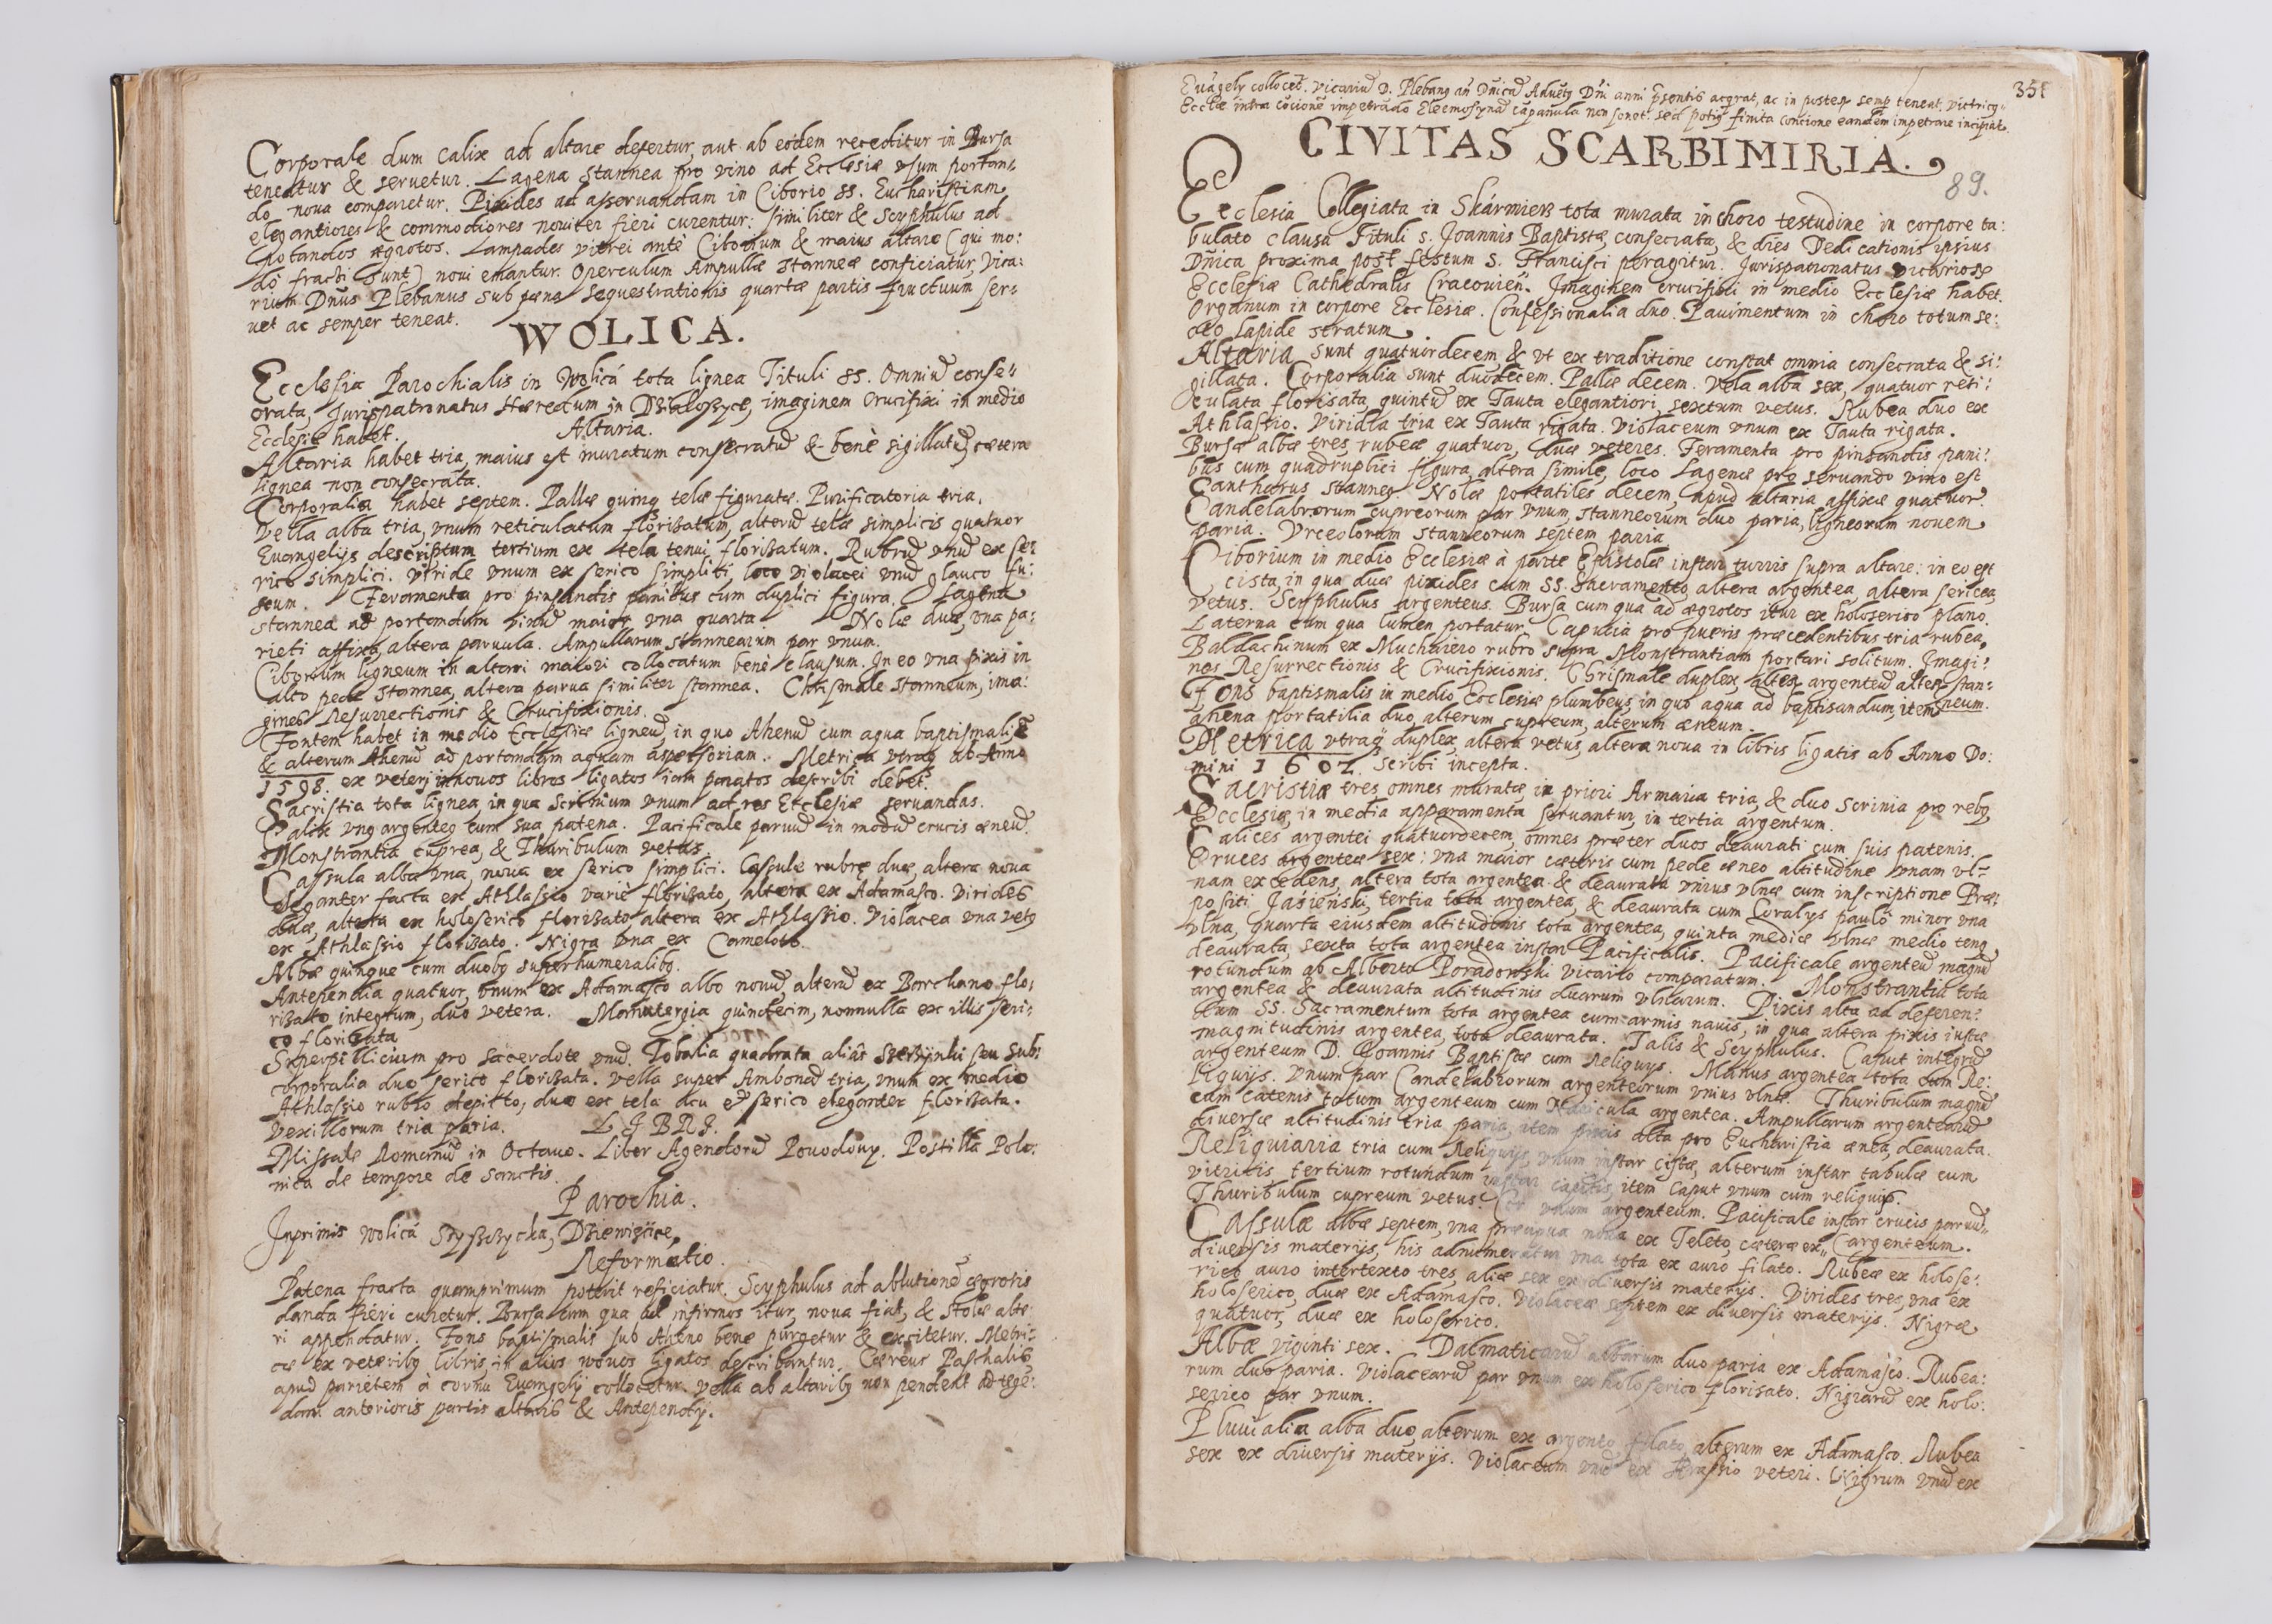 Corporale dum Calix ad altare defertur, aut ab eodem receditur in Bursa
teneatur & seruetur. Lagena stannea pro vino ad Ecclesiæ vsum portan¬
do noua comparetur. Pixides ad asseruandam in Ciborio SS. Eucharistiam
elegantiores & commodiores nouiter fieri curentur: similiter & Scyphulus ad
potandos ægrotos. Lampades vitrei ante Ciborium & maius altare (qui mo:
do fracti sunt) noui emantur. Operculum Ampullæ stanneæ conficiatur, Vica:
rium Dñus Plebanus sub pæna sequestrationis quartæ partis fructuum ser:
uet ac semper teneat.
WOLICA.
Ecclesia Parochialis in Wolica tota lignea Tituli SS. Omniũ conse:
crata, Jurispatronatus Hæredum in Dzialoszyce, imaginem Crucifixi in medio
Ecclesiæ habet.
Altaria.
Altaria habet tria, maius est muratum consecratũ & benè sigillatũ, cætera
lignea non consecrata.
Corporalia habet septem. Pallæ quinq telæ figuratæ. Purificatoria tria.
Vella alba tria, vnum reticulatum florisatum, alterũ telæ simplicis quatuor
Euangelijs descriptum tertium ex tela tenui florisatum. Rubrũ vnũ ex se:
rico simplici. viride vnum ex serico simplici, loco violacei vnũ glauco fu:
scum. Feramenta pro pinsandis panibus cum duplici figura. Lagena
stannea ad portandum vinũ maior vna quarta. Nolæ duæ, vna pa:
rieti affixa, altera paruula. Ampullarum stannearum par vnum.
Ciborium ligneum in altari maiori collocatum benè clausum. In eo vna pixis in
alto pede stannea, altera parua similiter stannea. Chrismale stanneum, ima:
gines Resurrectionis & Crucifixionis.
Fontem habet in medio Ecclesiæ ligneũ, in quo Ahenũ cum aqua baptismali
& alterum Ahenũ ad portandam aquam aspersoriam. Metrica vtraq ab Anno
1598. ex veteri in nouos libros ligatos iam paratos describi debet.
Sacristia tota lignea, in qua Scrinium vnum ad res Ecclesiæ seruandas.
Calix vnq argenteq cum sua patena. Pacificale paruũ in modũ crucis æneũ.
Monstrantia cuprea, & Thuribulum vetus.
Cassula alba vna, noua ex serico simplici. Cassule rubre duæ, altera noua
eleganter facta ex Athlassio variè florisato, altera ex Adamasco. Virides
duæ, altera ex holoserico florisato altera ex Athlassio. Violacea vna vetq
ex Athlassio florisato. Nigra vna ex Cameloto.
Albæ quinque cum duobq superhumeralibq.
Antependia quatuor, vnum ex Adamasco albo nouũ, alterũ ex Barchano flo:
risato integrum, duo vetera. Manutergia quindecim, nonnulla ex illis seri:
co florisata
Superpillicium pro sacerdote vnũ. Tobalia quadrata aliàs seu Sub:
corporalia duo serico florisata. Vella super Ambonẽ tria, vnum ex medio
Athlassio rubro depicto, duo ex tela acu & serico eleganter florisata.
Vexillorum tria paria.
LIBRI.
Missale Romanũ in Octauo. Liber Agendorũ Postilla Polo:
nica de tempore de sanctis.
Parochia.
Inprimis Wolica
Reformatio.
Patena fracta quamprimum poterit reficiatur. Scyphulus ad ablutionẽ ægrotis
danda fieri curetur. Bursa cum qua ad infirmos itur, noua fiat, & Stola alte:
ri appendatur. Fons baptismalis sub Aheno bene purgetur & excitetur. Metri:
cæ ex veteribq libris, in alios nouos ligatos describantur. Cæreus Paschalis
apud parietem à cornu Euangelij collocetur. Vella ab altaribq non pendeat ad tegen:
dam anterioris partis altaris & Antependij.
351
Euãgely collocet. Vicariũ D. Plebang an Dñicã Aduẽtq Dñi anni psentis acqrat, ac in posteq semp teneat.
Eccliæ intra cõcionẽ impetrãdo Eleemosynã cãpanula non sonet: sed potiq finita concione eandem impetrare incipiat.
CIVITAS SCARBIMIRIA.
89.
Ecclesia Collegiata in Skarmierz tota murata in choro testudine in corpore ta:
bulato clausa Tituli S. Joannis Baptistæ, consecrata, & dies Dedicationis ipsius
Dñica proxima post festum S. Francisci peragitur. Jurispatronatus Vicariorq
Ecclesiæ Cathedralis Cracouieñ. Imaginem Crucifixi in medio Ecclesiæ habet.
Organum in corpore Ecclesiæ. Confessionalia duo. Pauimentum in choro totum se:
cto lapide stratum.
Altaria sunt quatuordecem & vt ex traditione constat omnia consecrata & si:
gillata. Corporalia sunt duodecem. Pallæ decem. Vela alba sex, quatuor reti:
culata florisata, quintũ ex Tauta elegantiori, sextum vetus. Rubea duo ex
Athlassio. Viridia tria ex Tauta rigata. Violaceum vnum ex Tauta rigata.
Bursæ albæ tres, rubeæ quatuor, duæ veteres. Feramenta pro pinsandis pani:
bus cum quadruplici figura, altera simile, loco Lagenæ pro seruando vino est
Cantharus stanneq. Nolæ portatiles decem, apud altaria affixæ quatuor.
Candelabrorum cupreorum par vnum, stanneorum duo paria, ligneorum nouem
paria. Vrceolorum stanneorum septem paria
Ciborium in medio Ecclesiæ à parte Epistolæ instar turris supra altare: in eo est
cista, in qua duæ pixides cum SS. Sacramento, altera argentea, altera sericea,
vetus. Scyphulus argenteus. Bursa cum qua ad ægrotos itur ex holoserico plano.
Laterna cum qua lumen portatur. Caputia pro pueris præcedentibus tria rubea,
Baldachinum ex Muchaiero rubro supra Monstrantiam portari solitum. Imagi:
nes Resurrectionis & Crucifixionis. Chrismale duplex, alterq argenteũ alterq stan:
neum.
Fons baptismalis in medio Ecclesiæ plumbeus, in quo aqua ad baptisandum, item
ahena portatilia duo, alterum cupreum, alterum æneum.
Metrica vtraq duplex, altera vetus, altera noua in libris ligatis ab Anno Do:
mini 1602. scribi incepta.
Sacristiæ tres, omnes muratæ, in priori Armaria tria, & duo scrinia pro rebq
Ecclesiæ, in media apparamenta seruantur, in tertia argentum.
Calices argentei quatuordecem, omnes præter duos deaurati cum suis patenis.
Cruces argenteæ sex: vna maior cæteris cum pede æneo altitudine vnam vl:
nam excedens, altera tota argentea & deaurata vnius vlnæ cum inscriptione Præ:
positi Jasieński, tertia tota argentea, & deaurata cum Coralijs paulò minor vna
vlna, quarta eiusdem altitudinis tota argentea, quinta mediæ vlnæ medio tenq
deaurata, sexta tota argentea instar Pacificalis. Pacificale argenteũ magnũ
rotundum ab Alberto Poradowski vicario comparatum. Monstrantia tota
argentea & deaurata altitudinis duarum vlnarum. Pixis alta ad deferen:
dum SS. Sacramentum tota argentea cum armis nauis, in qua altera pixis iustæ
magnitudinis argentea, tota deaurata. Talis & Scyphulus. Caput integrũ
argenteum D. Joannis Baptistæ cum Reliquijs. Manus argentea tota cum Re:
liquijs. Vnum par Candelabrorum argenteorum vnius vlnæ. Thuribulum magnũ
cum catenis totum argenteum cum Nauicula argentea. Ampullarum argentearũ
diuersæ altitudinis tria paria, item pixis alta pro Eucharistia ænea, deaurata.
Reliquiaria tria cum Reliquijs, vnum instar Cistæ, alterum instar tabulæ cum
vitricis, tertium rotundum instar capitis, item Caput vnum cum reliquijs.
Thuribulum cupreum vetus. vnum argenteum. Pacificale instar crucis paruũ
argenteum.
Cassulæ albæ septem, vna præcipua noua ex Teleto, cæteræ ex
diuersis materijs, his adnumeratur vna tota ex auro filato. Rubeæ ex holose:
rico auro intertexto tres, aliæ sex ex diuersis materijs. Virides tres, vna ex
holoserico, duæ ex Adamasco. Violaceæ septem ex diuersis materijs. Nigræ
quatuor, duæ ex holoserico.
Albæ viginti sex. Dalmaticarũ albarum duo paria ex Adamasco. Rubea:
rum duo paria. Violacearũ par vnum ex holoserico florisato. Nigrarũ ex holo:
serico par vnum.
Pluuialia alba duo, alterum ex argento filato, alterum ex Adamasco. Rubea
sex ex diuersis materijs. Violaceum vnũ ex veteri. Nigrum vnũ ex